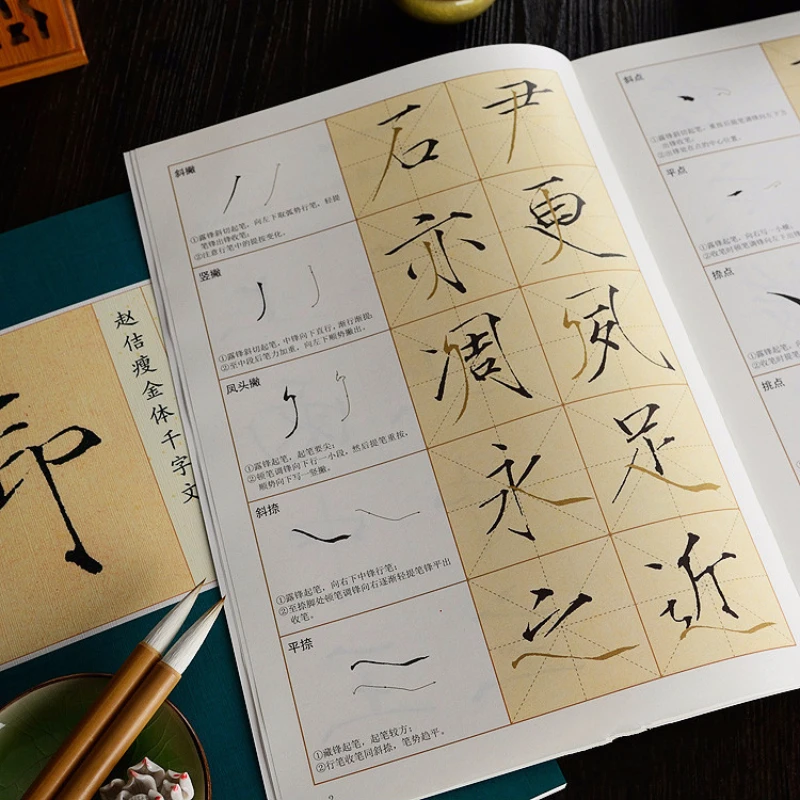 赵佶瘦金体千字文
斜撇
①露锋斜切起笔，向左下取弧势行笔，轻提
笔锋出锋收笔；
②注意行笔中的提按变化。
石
尹
竖撇
①露锋斜切起笔，中锋向下直行，渐行渐提；
②至中段后笔力加重，向左下顺势撇出。
亦
更
凤头撇
①露锋起笔，起笔要尖；
②顿笔调锋向下行一小段，然后提笔重按，
顺势向下写一竖撇。
凋
夙
斜捺
①露锋起笔，向右下中锋行笔；
②至捺脚处顿笔调锋向右逐渐轻提笔锋平出
收笔。
永
足
平捺
①藏锋起笔，起笔较方；
②行笔收笔同斜捺，笔势趋平。
之
近
2
斜点
平点
捺点
挑点